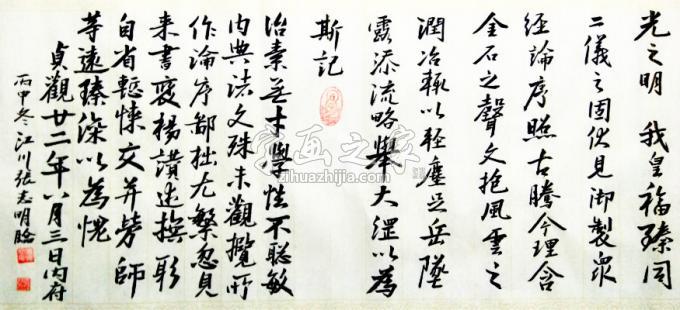 光之明 我皇福臻同
二儀之固伏見御製衆
經論序照古騰今理含
金石之聲文抱風雲之
潤治輒以輕塵足岳墜
露添流略舉大綱以爲
斯記
治素無才學性不聰敏
内典諸文殊未觀攬所
作論序鄙拙尤繁忽見
来書褒揚讃述撫躬
自省慙悚交并勞師
等遠臻深以為愧
貞觀廿二年八月三日内府
丙申冬江川張志明臨
字画之家
zihuazhijia.com